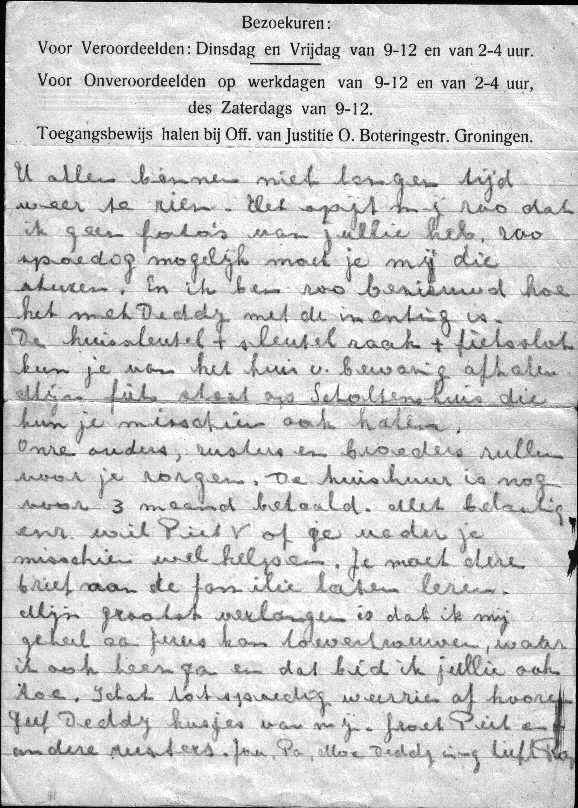 Bezoekuren:
Voor Veroordeelden: Dinsdag en Vrijdag van 9-12 en van 2-4 uur.
Voor Onveroordeelden op werkdagen van 9-12 en van 2-4 uur,
des Zaterdags van 9-12.
Toegangsbewijs halen bij Off. van Justitie O. Boteringestr. Groningen.
U allen binnen niet langen tijd
weer te zien. Het spijt mij zoo dat
ik geen foto's van jullie heb, zoo
spoedog mogelijk moet je mij die
sturen. En ik ben zoo benieuwd hoe
het met Deddy met de inenting is.
De huissleutel + sleutel zaak + fietsslot
kun je van het huis v. bewaring afhalen
Mijn fiets staat op Scholtenshuis die
kun je misschien ook halen.
Onze ouders, zusters en broeders zullen
voor je zorgen. De huishuur is nog
voor 3 maand betaald. Met belasting
enz. wil Piet V of je vader je
misschien wel helpen. Je moet deze
brief aan de familie laten lezen.
Mijn grootst verlangen is dat ik mij
geheel aan Jezus kan toevertrouwen, waar
ik ook heen ga en dat bid ik jullie ook
toe. Schat tot spoedig weerzien of hooren
Geef Deddy kusjes van mij. Groet Piet en
andere zusters. Pa, Moe Deddy innig